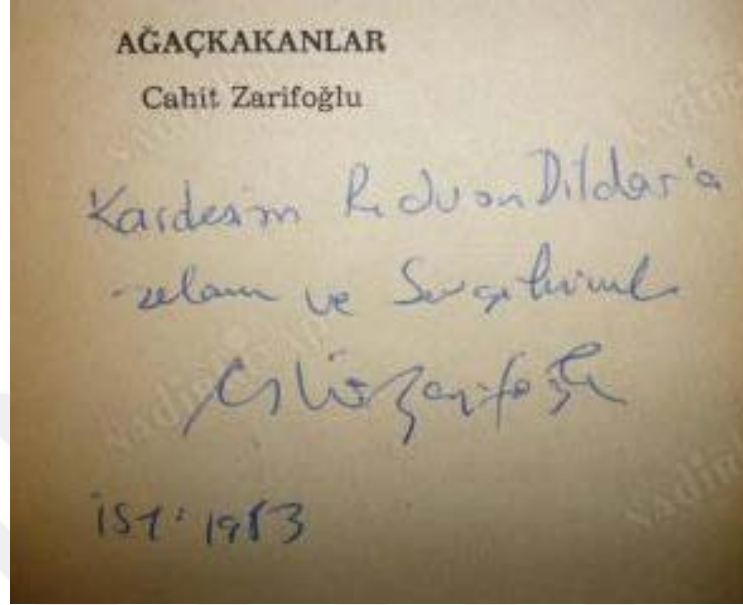 AĞAÇKAKANLAR
Cahit Zarifoğlu
Kardeşim Rıdvan Dildar'a
selam ve Sevgilerimle
Cahit Zarifoğlu
İST: 1983